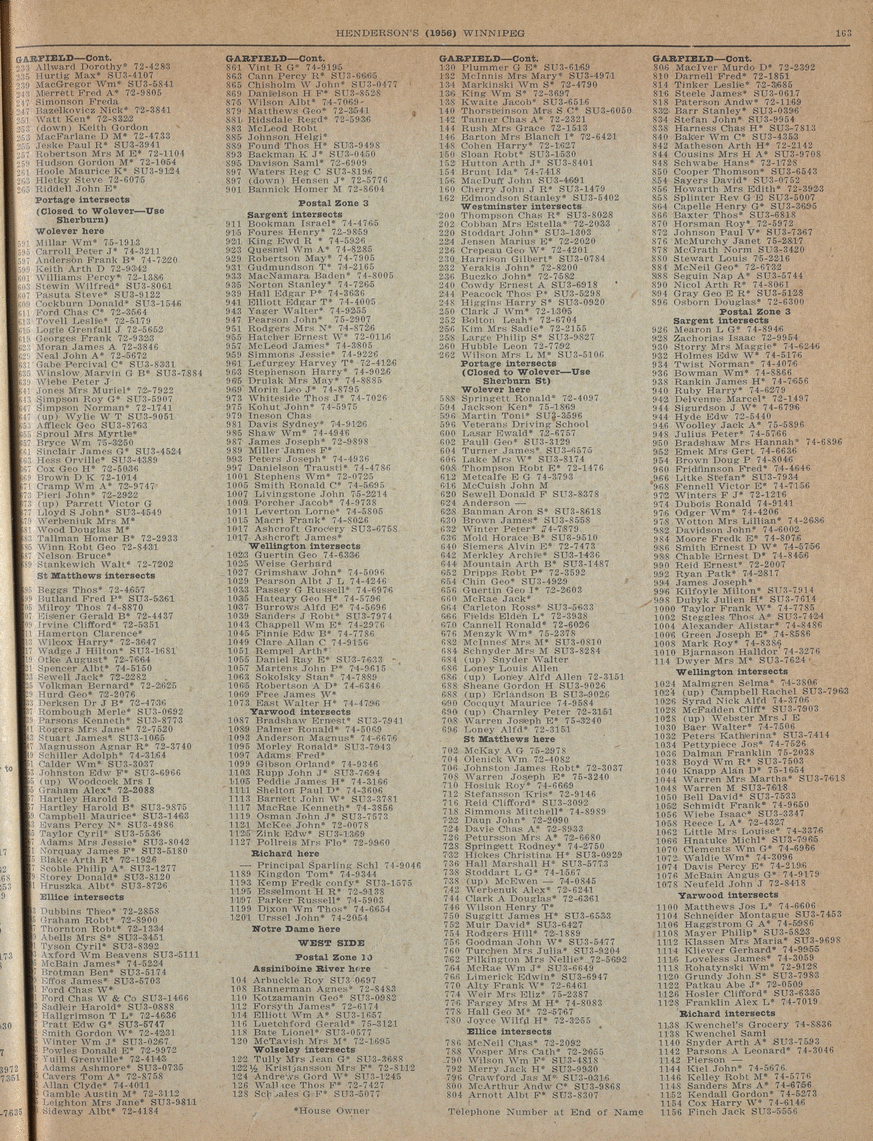 HENDERSON'S (1956) WINNIPEG 163
GARFIELD—Cont.
Allward Dorothy* 72-4283
235 Hurtig Max* SU3-4107
239 MacGregor Wm* SU3-5841
Merrett Fred A* 72-9805
Simonson Freda
Bazelkovicz Nick* 72-3841
251 Watt Ken* 72-8322
(down) Keith Gordon
255 MacFarlane D M* 72-4733
255 Jeske Paul R* SU3-3941
257 Robertson Mrs M E* 72-1104
Hudson Gordon M* 72-1054
261 Hoole Maurice K* SU3-9124
263 Hletky Steve 72-6075
265 Riddell John E*
Portage intersects
(Closed to Wolever—Use
Sherburn)
Wolever here
591 Millar Wm* 75-1913
595 Carroll Peter J* 74-3211
597 Anderson Frank B* 74-7220
599 Keith Arth D 72-9342
Williams Percy* 72-1386
Stewin Wilfred* SU3-8061
Pasuta Steve* SU3-9122
Cockburn Donald* SU3-1546
Ford Chas C* 72-3564
Tovell Leslie* 72-5179
Logie Grenfall J 72-5652
Georges Frank 72-9323
Moran James A 72-3846
Neal John A* 72-5672
Gabe Percival C* SU3-8331
Winslow Marvin G B* SU3-7884
Wiebe Peter J
Jones Mrs Muriel* 72-7922
Simpson Roy G* SU3-5907
Simpson Norman* 72-1741
(up) Wylie W T SU3-9051
Affleck Geo SU3-8763
Sproul Mrs Myrtle*
Bryce Wm 75-3250
Sinclair James G* SU3-4524
Hess Orville* SU3-4389
Cox Geo H* 72-5036
Brown D K 72-1014
Cramp Wm A* 72-9747
Pieri John* 72-2922
(up) Parrett Victor G
Lloyd S John* SU3-4549
Werbeniuk Mrs M*
Wood Douglas M*
Tallman Homer B* 72-2933
Winn Robt Geo 72-8431
Nelson Bruce*
Stankewich Walt* 72-7202
St Matthews intersects
Beggs Thos* 72-4657
Butland Fred P* SU3-5361
Milroy Thos 74-8870
Eisener Gerald B* 72-4437
Irvine Clifford* 72-5351
Hamerton Clarence*
Wilcox Harry* 72-3647
Wadge J Hilton* SU3-1681
Otke August* 72-7664
Spencer Albt* 74-5150
Sewell Jack* 72-2282
Volkman Bernard* 72-2625
Hurd Geo* 72-2076
Derksen Dr J B* 72-4736
Rombough Merle* SU3-0692
Parsons Kenneth* SU3-8773
Rogers Mrs Jane* 72-7520
Stuart James* SU3-1065
Magnusson Agnar R* 72-3740
Schiller Adolph* 74-3164
Calder Wm* SU3-3037
Johnston Edw F* SU3-6966
(up) Woodcock Mrs I
Graham Alex* 72-2088
Hartley Harold B
Hartley Harold B* SU3-9875
Campbell Maurice* SU3-1463
Evans Percy N* SU3-4986
Taylor Cyril* SU3-5536
Adams Mrs Jessie* SU3-8042
Norquay James F* SU3-5180
Blake Arth R* 72-1926
Scoble Philip A* SU3-1277
Storey Donald* SU3-8120
Hruszka Albt* SU3-8726
Ellice intersects
Dubbins Theo* 72-2858
Graham Robt* 72-8900
Thornton Robt* 72-1334
Abells Mrs S* SU3-3451
Tyson Cyril* SU3-8392
Axford Wm Beavens SU3-5111
McBain James* 74-5224
Brotman Ben* SU3-5174
Effos James* SU3-5703
Ford Chas W*
Ford Chas W & Co SU3-1466
Sadleir Harold* SU3-0888
Hallgrimson T L* 72-4636
Pratt Edw G* SU3-5747
Smith Gordon W* 72-4231
Winter Wm J* SU3-0267
Powles Donald E* 72-9972
Yuill Grenville* 72-4143
Adams Ashmore* SU3-0735
Cavers Tom A* 72-8758
Allan Clyde* 74-4011
Gamble Austin M* 72-3112
Leighton Mrs Jane* SU3-9811
Sideway Albt* 72-4184
GARFIELD—Cont.
861 Vint R G* 74-9195
863 Cann Percy R* SU3-6665
865 Chisholm W John* SU3-0477
869 Danielson H F* SU3-8528
875 Wilson Albt* 74-7069
879 Matthews Geo* 72-3541
881 Ridsdale Regd* 72-5936
883 McLeod Robt
885 Johnson Helgi*
889 Found Thos H* SU3-9498
893 Backman K J* SU3-0450
895 Davison Saml* 72-6909
897 Waters Reg C SU3-8196
897 (down) Hensen J* 72-5776
901 Bannick Homer M 72-8604
Postal Zone 3
Sargent intersects
911 Bookman Israel* 74-4765
915 Foures Henry* 72-9859
921 King Ewd R* 74-5926
923 Quesnel Wm A* 74-8285
929 Robertson May* 74-7905
931 Gudmundson T* 74-2165
933 MacNamara Baden* 74-8005
935 Norton Stanley* 74-7265
939 Hall Edgar P* 74-3636
941 Elliott Edgar T* 74-4005
943 Yager Walter* 74-9255
947 Pearson John* 75-2907
951 Rodgers Mrs N* 74-8726
955 Hatcher Ernest W* 72-0116
957 McLeod James* 74-3805
959 Simmons Jessie* 74-9226
961 Lefurgey Harvey T* 72-4126
963 Stephenson Harry* 74-9026
965 Drulak Mrs May* 74-8885
969 Morin Leo J* 74-8795
973 Whiteside Thos J* 74-7026
975 Kohut John* 74-5975
979 Ineson Chas
981 Davis Sydney* 74-9126
985 Shaw Wm* 74-4946
987 James Joseph* 72-9898
989 Miller James F*
993 Peters Joseph* 74-4936
997 Danielson Trausti* 74-4786
1001 Stephens Wm* 72-0725
1005 Smith Ronald C* 74-5695
1007 Livingstone John 75-2214
1009 Porcher Jacob* 74-9738
1011 Leverton Lorne* 74-5805
1015 Macri Frank* 74-8026
1017 Ashcroft Grocery SU3-6758
1017 Ashcroft James*
Wellington intersects
1023 Guertin Geo 74-6336
1025 Weise Gerhard
1027 Grimshaw John* 74-5096
1029 Pearson Albt J L 74-4246
1033 Passey G Russell* 74-6976
1035 Hateley Geo H* 74-5796
1037 Burrows Alfd E* 74-5696
1039 Sanders J Robt* 74-7974
1043 Chappell Wm E* 74-2976
1045 Finnie Edw B* 74-7786
1049 Clare Allan C* 74-9156
1051 Rempel Arth*
1055 Daniel Ray E* SU3-7633
1057 Martens John P* 74-9615
1063 Sokolsky Stan* 74-7889
1065 Robertson A D* 74-6346
1069 Free James W*
1073 East Walter H* 74-4796
Yarwood intersects
1087 Bradshaw Ernest* SU3-7941
1089 Palmer Ronald* 74-5069
1093 Anderson Magnus* 74-6676
1095 Morley Ronald* SU3-7943
1097 Adams Fred*
1099 Gibson Orland* 74-9346
1103 Rupp John J* SU3-7694
1105 Peddie James H* 74-3166
1111 Shelton Paul D* 74-3606
1113 Barnett John W* SU3-3781
1117 MacRae Kenneth* 74-3856
1119 Osman John J* SU3-7573
1121 McKee John* 72-0078
1125 Zink Edw* SU3-1369
1127 Pollreis Mrs Flo* 72-9960
Richard here
— Principal Sparling Schl 74-9046
1189 Kingdon Tom* 74-9344
1193 Kemp Fredk confy* SU3-1575
1195 Esselmont H R* 72-9138
1197 Parker Russell* 74-5903
1199 Dixon Wm Thos* 74-6654
1201 Urssel John* 74-2054
Notre Dame here
WEST SIDE
Postal Zone 10
Assiniboine River here
104 Arbuckle Roy SU3-0697
108 Bannerman Agnes* 72-8483
110 Kotzamanin Geo* SU3-0982
112 Forsyth James* 72-6174
114 Elliott Wm A* SU3-1657
116 Luetchford Gerald* 75-3121
118 Bate Lionel* SU3-0577
120 McTavish Mrs M* 72-1695
Wolseley intersects
122 Tully Mrs Jean G* SU3-3688
122½ Kristjansson Mrs F* 72-8112
124 Andrews Gord W* SU3-1245
126 Wallace Thos F* 72-7427
128 Scholes G F* SU3-5077
*House Owner
GARFIELD—Cont.
130 Plummer G E* SU3-6169
132 McInnis Mrs Mary* SU3-4971
134 Markinski Wm S* 72-4790
136 King Wm S* 72-3697
138 Kwaite Jacob* SU3-6516
140 Thorsteinson Mrs S C* SU3-6050
142 Tanner Chas A* 72-2321
144 Rush Mrs Grace 72-1513
146 Barton Mrs Blanch I* 72-6421
148 Cohen Harry* 72-1627
150 Sloan Robt* SU3-1530
152 Hutton Arth J* SU3-8401
154 Brunt Ida* 74-7418
156 MacDuff John SU3-4691
160 Cherry John J R* SU3-1479
162 Edmondson Stanley* SU3-5402
Westminster intersects
200 Thompson Chas R* SU3-8028
202 Cobban Mrs Estella* 72-2033
220 Stoddart John* SU3-1303
224 Jensen Marius E* 72-2020
226 Crepeau Geo W* 72-4201
230 Harrison Gilbert* SU3-0784
232 Yerakis John* 72-8200
236 Buczko John* 72-7582
240 Cowdy Ernest A SU3-6918
244 Peacock Thos P* SU3-5298
248 Higgins Harry S* SU3-0920
250 Clark J Wm* 72-1305
252 Bolton Leah* 72-6704
256 Kim Mrs Sadie* 72-2155
258 Large Philip S* SU3-9827
260 Hubble Leon 72-7792
262 Wilson Mrs L M* SU3-5106
Portage intersects
(Closed to Wolever—Use
Sherburn St)
Wolever here
588 Springett Ronald* 72-4097
594 Jackson Ken* 75-1869
596 Martin Toni* SU3-3596
596 Veterans Driving School
600 Lasar Ewald* 72-6757
602 Paull Geo* SU3-3129
604 Turner James* SU3-6575
606 Lake Mrs W* SU3-8174
608 Thompson Robt E* 72-1476
612 Metcalfe E G 74-3793
616 McCuish John M
620 Sewell Donald F SU3-8378
624 Anderson —
628 Bannan Aron S* SU3-8618
630 Brown James* SU3-8558
632 Winter Peter* 74-7879
636 Mold Horace B* SU8-9510
640 Siemers Alvin E* 72-7473
642 Merkley Archie* SU3-1436
644 Mountain Arth B* SU3-1487
652 Dripps Robt P* 72-3592
654 Chin Geo* SU3-4929
656 Guertin Geo J* 72-2603
660 McRae Jack*
664 Carleton Ross* SU3-5633
666 Fields Elden L* 72-3938
670 Cannell Ronald* 72-6026
676 Menzyk Wm* 75-2378
682 McInnes Mrs M* SU3-0810
684 Schnyder Mrs M SU3-8284
684 (up) Snyder Walter
686 Loney Louis Allen
686 (up) Loney Alfd Allen 72-3151
688 Sheane Gordon H SU3-9026
688 (up) Erlandson B SU3-9026
690 Cocuyt Maurice 74-9584
690 (up) Charnley Peter 72-3151
708 Warren Joseph E* 75-3240
696 Loney Alfd* 72-3151
St Matthews here
702 McKay A G 75-2978
704 Olenick Wm 72-4082
706 Johnston James Robt* 72-3037
708 Warren Joseph E* 75-3240
710 Hosiuk Roy* 74-6669
712 Stefansson Kris* 72-9146
716 Reid Clifford* SU3-3092
718 Simmons Mitchell* 74-8989
722 Daun John* 72-2090
724 Davie Chas A* 72-8933
726 Petursson Mrs A* 72-6680
728 Springett Rodney* 74-2750
732 Hickes Christina H* SU3-0929
736 Hall Marshall H* SU3-5773
738 Stoddart L G* 74-1567
738 (up) McEwen — 74-0845
742 Werbenuk Alex* 72-6241
744 Clark A Douglas* 72-6361
746 Wilson Henry T*
750 Suggitt James H* SU3-6533
752 Muir David* SU3-6427
754 Rodgers Hill* 72-1889
756 Goodman John W* SU3-5477
760 Turchen Mrs Julia* SU3-9204
762 Pilkington Mrs Nellie* 72-5692
764 McRae Wm J* SU3-6649
766 Limerick Edwin* SU3-6947
770 Alty Frank W* 72-6461
774 Weir Mrs Eliz* 75-2387
776 Pargey Mrs M H* 74-8083
778 Hall Geo M* 72-5767
780 Joyce Wilfd H* 72-3255
Ellice intersects
786 McNeil Chas* 72-2092
788 Vosper Mrs Cath* 72-2655
790 Wilson Wm F* SU3-4818
792 Merry Jack H* SU3-9930
796 Crawford Jas M* SU3-0316
800 McArthur Andw C* SU3-9868
804 Arnott Albt F* SU3-8307
Telephone Number at End of Name
806 MacIver Murdo D* 72-2392
810 Darnell Fred* 72-1851
814 Tinker Leslie* 72-3685
816 Steele James* SU3-0617
818 Paterson Andw* 72-1169
832 Barr Stanley* SU3-0396
834 Stefan John* SU3-9954
838 Harness Chas H* SU3-7813
840 Baker Wm C* SU3-4353
842 Matheson Arth H* 72-2142
844 Cousins Mrs H A* SU3-9708
848 Schwabe Hans* 72-1728
850 Cooper Thomson* SU3-6543
854 Sayers David* SU3-0752
856 Howarth Mrs Edith* 72-3923
858 Splinter Rev G E SU3-5007
864 Capelle Henry G* SU3-3695
866 Baxter Thos* SU3-6818
870 Horsman Roy* 72-5972
872 Johnson Paul V* SU3-7367
876 McMurchy Janet 75-2817
878 McGrath Norm SU3-3420
880 Stewart Louis 75-2216
884 McNeil Geo* 72-6732
888 Seguin Nap A* SU3-5744
890 Nicol Arth R* 74-8061
894 Gray Geo E R* SU3-5128
896 Osborn Douglas* 72-6300
Postal Zone 3
Sargent intersects
926 Mearon L G* 74-8946
928 Zachorias Isaac 72-9954
930 Storry Mrs Maggie* 74-6246
932 Holmes Edw W* 74-5176
934 Twist Norman* 74-4076
936 Bowman Wm* 74-8866
938 Rankin James H* 74-7656
940 Ruby Harry* 74-6279
942 Delvenne Marcel* 72-1497
944 Sigurdson J W* 74-6796
944 Hyde Edw 72-5440
946 Woolley Jack A* 75-5896
948 Julius Peter* 74-5766
950 Bradshaw Mrs Hannah* 74-6896
952 Emek Mrs Gert 74-6636
954 Brown Doug P 74-8046
960 Fridfinnson Fred* 74-4646
966 Litke Stefan* SU3-7934
968 Fennell Victor E* 74-7156
972 Winters F J* 72-1216
974 Dubois Ronald 74-9141
976 Odger Wm* 74-4206
978 Wotton Mrs Lillian* 74-2686
982 Davidson John* 74-6002
984 Moore Fredk E* 74-8076
986 Smith Ernest D W* 74-5756
988 Chable Ernest D* 74-8456
990 Reid Ernest* 72-2007
992 Ryan Patk* 74-2817
994 James Joseph*
996 Kilfoyle Milton* SU3-7914
998 Dubyk Julien H* SU3-7614
1000 Taylor Frank W* 74-7785
1002 Steggles Thos A* SU3-7424
1004 Alexander Alistar* 74-8486
1006 Green Joseph E* 74-8586
1008 Mark Roy* 74-8386
1010 Bjarnason Halldor 74-3276
114 Dwyer Mrs M* SU3-7624
Wellington intersects
1024 Malmgren Selma* 74-3806
1024 (up) Campbell Rachel SU3-7963
1026 Syrad Nick Alfd 74-3706
1028 McFadden Cliff* SU3-7903
1028 (up) Webster Mrs J E
1030 Baer Walter* 74-7506
1032 Peters Katherina* SU3-7414
1034 Pettypiece Jos* 74-7526
1036 Dalman Franklin 75-2038
1038 Boyd Wm R* SU3-7503
1040 Knapp Alan D* 75-1654
1044 Warren Mrs Martha* SU3-7618
1048 Warren M SU3-7618
1050 Bell David* SU3-7533
1052 Schmidt Frank* 74-9650
1056 Wiebe Isaac* SU3-3347
1058 Reece L A* 72-4327
1062 Little Mrs Louise* 74-3376
1066 Hnatuke Michl* SU3-7965
1070 Clements Wm G* 74-6966
1072 Waldie Wm* 74-3096
1074 Davis Percy E* 74-2196
1076 McBain Angus G* 74-9179
1078 Neufeld John J 72-8418
Yarwood intersects
1100 Matthews Jos L* 74-6606
1104 Schneider Montague SU3-7453
1106 Haggstrom G A* 74-5986
1108 Mayer Philip* SU3-5823
1112 Klassen Mrs Maria* SU3-9698
1114 Kliewer Gerhard* 74-9955
1116 Loveless James* 74-3059
1118 Rohatynski Wm* 72-9128
1120 Grundy John S* SU3-7983
1122 Patkau Abe J* 72-0509
1126 Hosler Clifford* SU3-6335
1128 Franklin Alex L* 74-7019
Richard intersects
1138 Kwenchel's Grocery 74-8836
1138 Kwenchel Saml
1140 Snyder Arth A* SU3-7593
1142 Parsons A Leonard* 74-3046
1142 Pierson —
1144 Kiel John* 74-5676
1146 Kelley Robt M* 74-5776
1148 Sanders Mrs A* 74-6756
1152 Kendall Gordon* 74-5273
1154 Cox Harry W* 74-6146
1156 Finch Jack SU3-5556